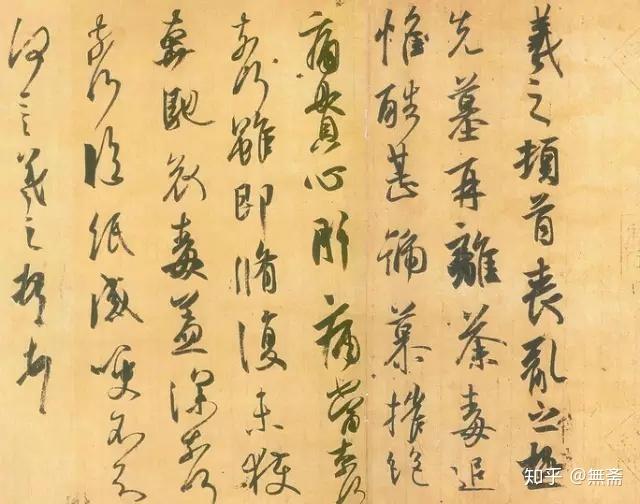 羲之頓首喪亂之極
先墓再離荼毒追
惟酷甚號慕摧絕
痛貫心肝痛當奈何
奈何雖即脩復未獲
奔馳哀毒益深奈何
奈何臨紙感哽不知
何言羲之頓首頓首
知乎 @無斎